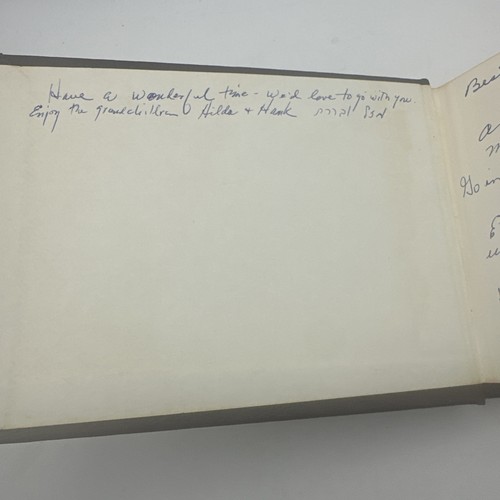 Have a wonderful time - We'd love to go with you.
Enjoy the grandchildren Hilda + Hank מזל וברכה
Best
a
m
Go in